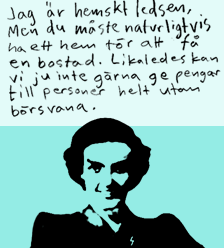 Jag är hemskt ledsen,
Men du måste naturligtvis
ha ett hem för att få
en bostad. Likaledes kan
vi ju inte gärna ge pengar
till personer helt utan
börsvana.